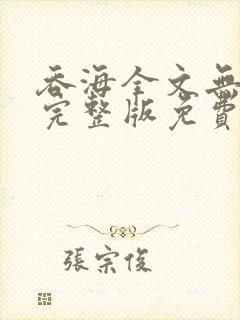 吞海全文無
完整版免費
張宗俊